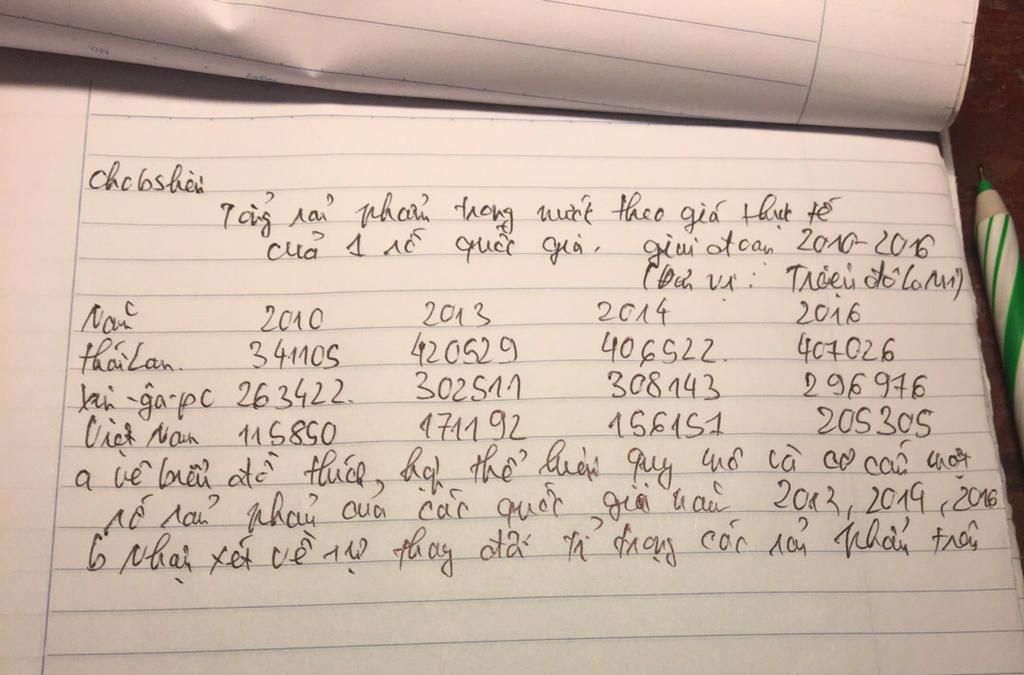 cho bshiệu
Tổng sản phẩm trong nước theo giá thực tế
của 1 số quốc gia. giai đoạn 2010-2016
(Đơn vị: Triệu đô la Mĩ)
Năm 2010 2013 2014 2016
Thái Lan. 341105 420529 406522. 407026
Xin-ga-po 263422. 302511 308143 296976
Việt Nam 115850 171192 156151 205305
a vẽ biểu đồ thích hợp thể hiện quy mô và cơ cấu một
số sản phẩm của các quốc gia năm 2013, 2014, 2016
b Nhận xét về sự thay đổi tỉ trọng các sản phẩm trên